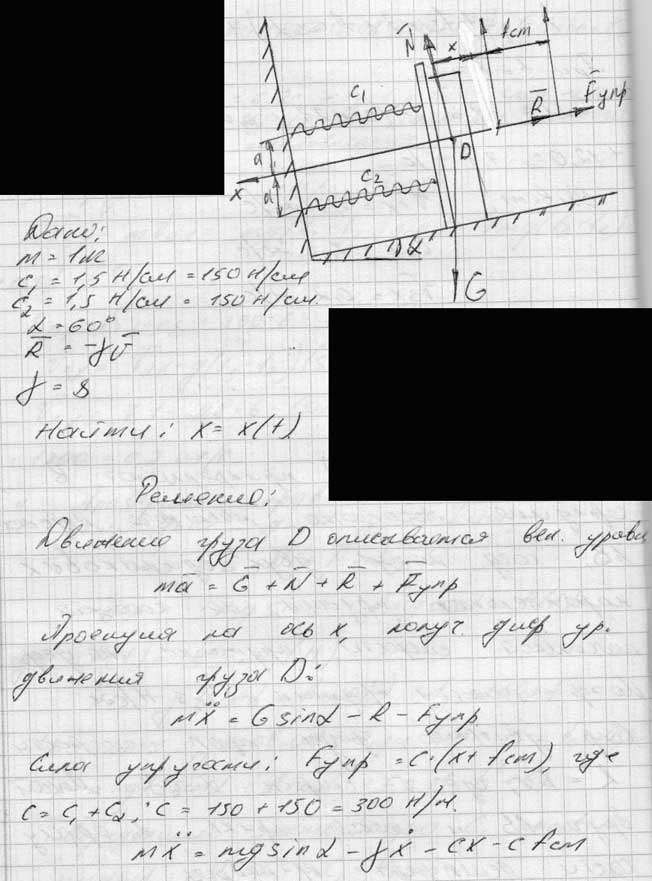 N̄
x
fст
F̄упр
R̄
c₁
a
D
x
a
c₂
α
G
Дано:
m = 1кг
c₁ = 1,5 Н/см = 150 Н/см
c₂ = 1,5 Н/см = 150 Н/см.
α = 60°
R̄ = -γV̄
γ = 8
Найти: x = x(t)
Решение:
Движение груза D описывается век. уравн
mā = Ḡ + N̄ + R̄ + F̄упр
Проецируя на ось x, получ. диф. ур.
движения груза D:
mẍ = G sinα - R - Fупр
Сила упругости: Fупр = c·(x + fст), где
c = c₁ + c₂; c = 150 + 150 = 300 Н/м.
mẍ = mg sinα - γẋ - cx - c fст